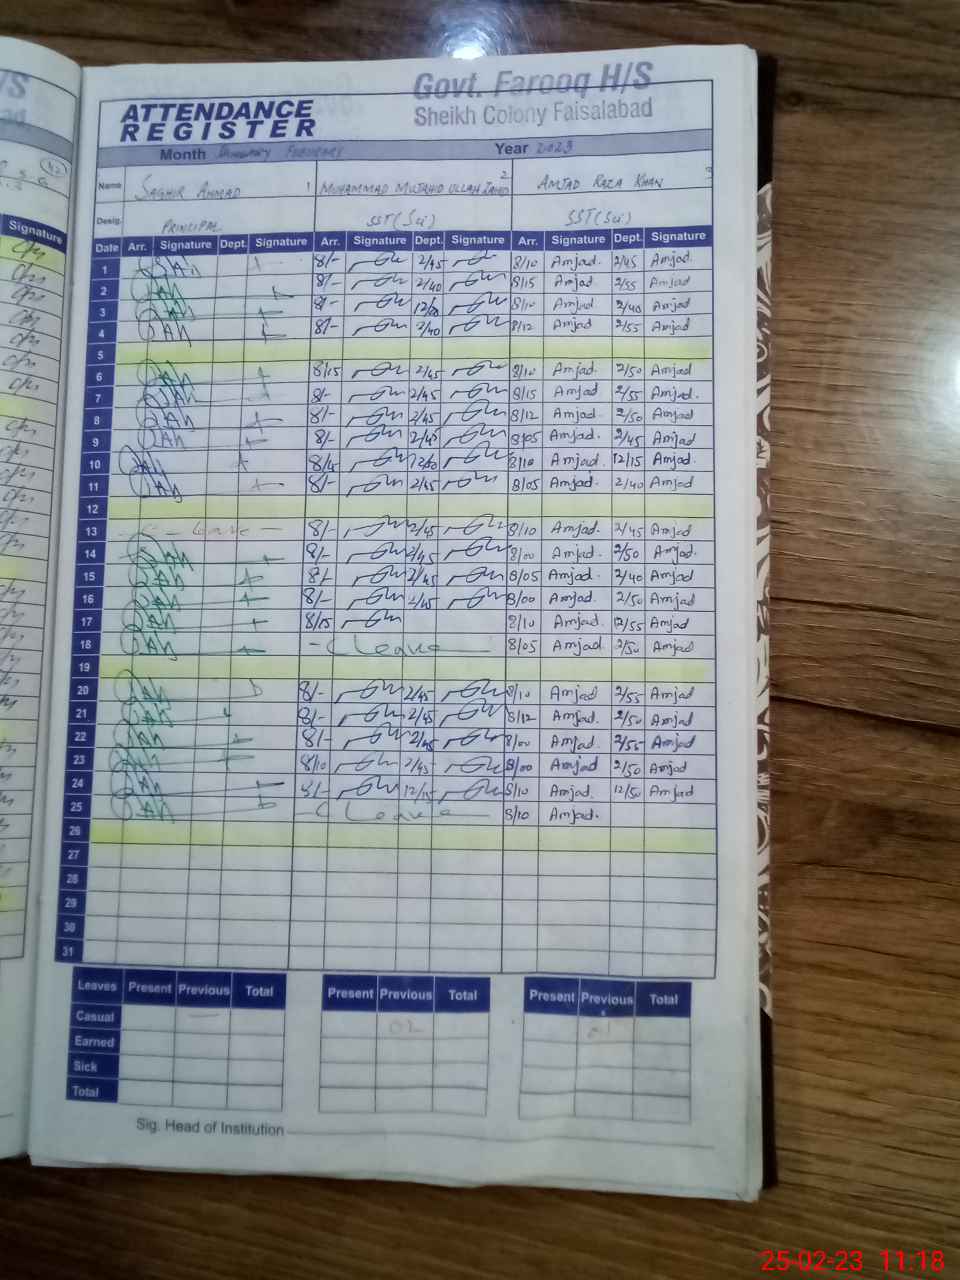 Govt. Farooq H/S
ATTENDANCE REGISTER
Sheikh Colony Faisalabad
Month January February Year 2023
Name SAGHIR AHMAD 1 MUHAMMAD MUJAHID ULLAH 2 AMJAD RAZA KHAN 3
Desig. PRINCIPAL SST(Sci) SST(Sci)
Date Arr. Signature Dept. Signature Arr. Signature Dept. Signature Arr. Signature Dept. Signature
1 8/- 2/45 8/10 Amjad. 2/45 Amjad.
2 8/- 2/40 8/15 Amjad 2/55 Amjad
3 8/- 8/10 Amjad 2/40 Amjad
4 8/- 2/40 8/12 Amjad 2/55 Amjad
5
6 8/15 2/45 8/10 Amjad 2/50 Amjad
7 8/- 2/45 8/15 Amjad 2/55 Amjad.
8 8/- 2/45 8/12 Amjad. 2/50 Amjad
9 8/- 8/05 Amjad. 2/45 Amjad.
10 8/10 Amjad. 12/15 Amjad.
11 8/- 2/45 8/05 Amjad. 2/40 Amjad
12
13 Leave 8/- 2/45 8/10 Amjad. 2/45 Amjad
14 8/- 2/45 8/00 Amjad. 2/50 Amjad.
15 8/- 2/45 8/05 Amjad. 2/40 Amjad
16 8/- 2/45 8/00 Amjad. 2/50 Amjad
17 8/15 8/10 Amjad. 12/55 Amjad.
18 Leave 8/05 Amjad. 2/50 Amjad
19
20 8/- 2/45 8/10 Amjad 2/55 Amjad
21 8/- 2/45 8/12 Amjad. 2/50 Amjad
22 8/- 2/45 8/00 Amjad. 2/55 Amjad
23 8/10 2/45 8/00 Amjad 2/50 Amjad
24 8/- 12/15 8/10 Amjad. 12/50 Amjad
25 Leave 8/10 Amjad.
26
27
28
29
30
31
Leaves Present Previous Total Present Previous Total Present Previous Total
Casual — 02 01
Earned
Sick
Total
Sig. Head of Institution
Signature
25-02-23 11:18